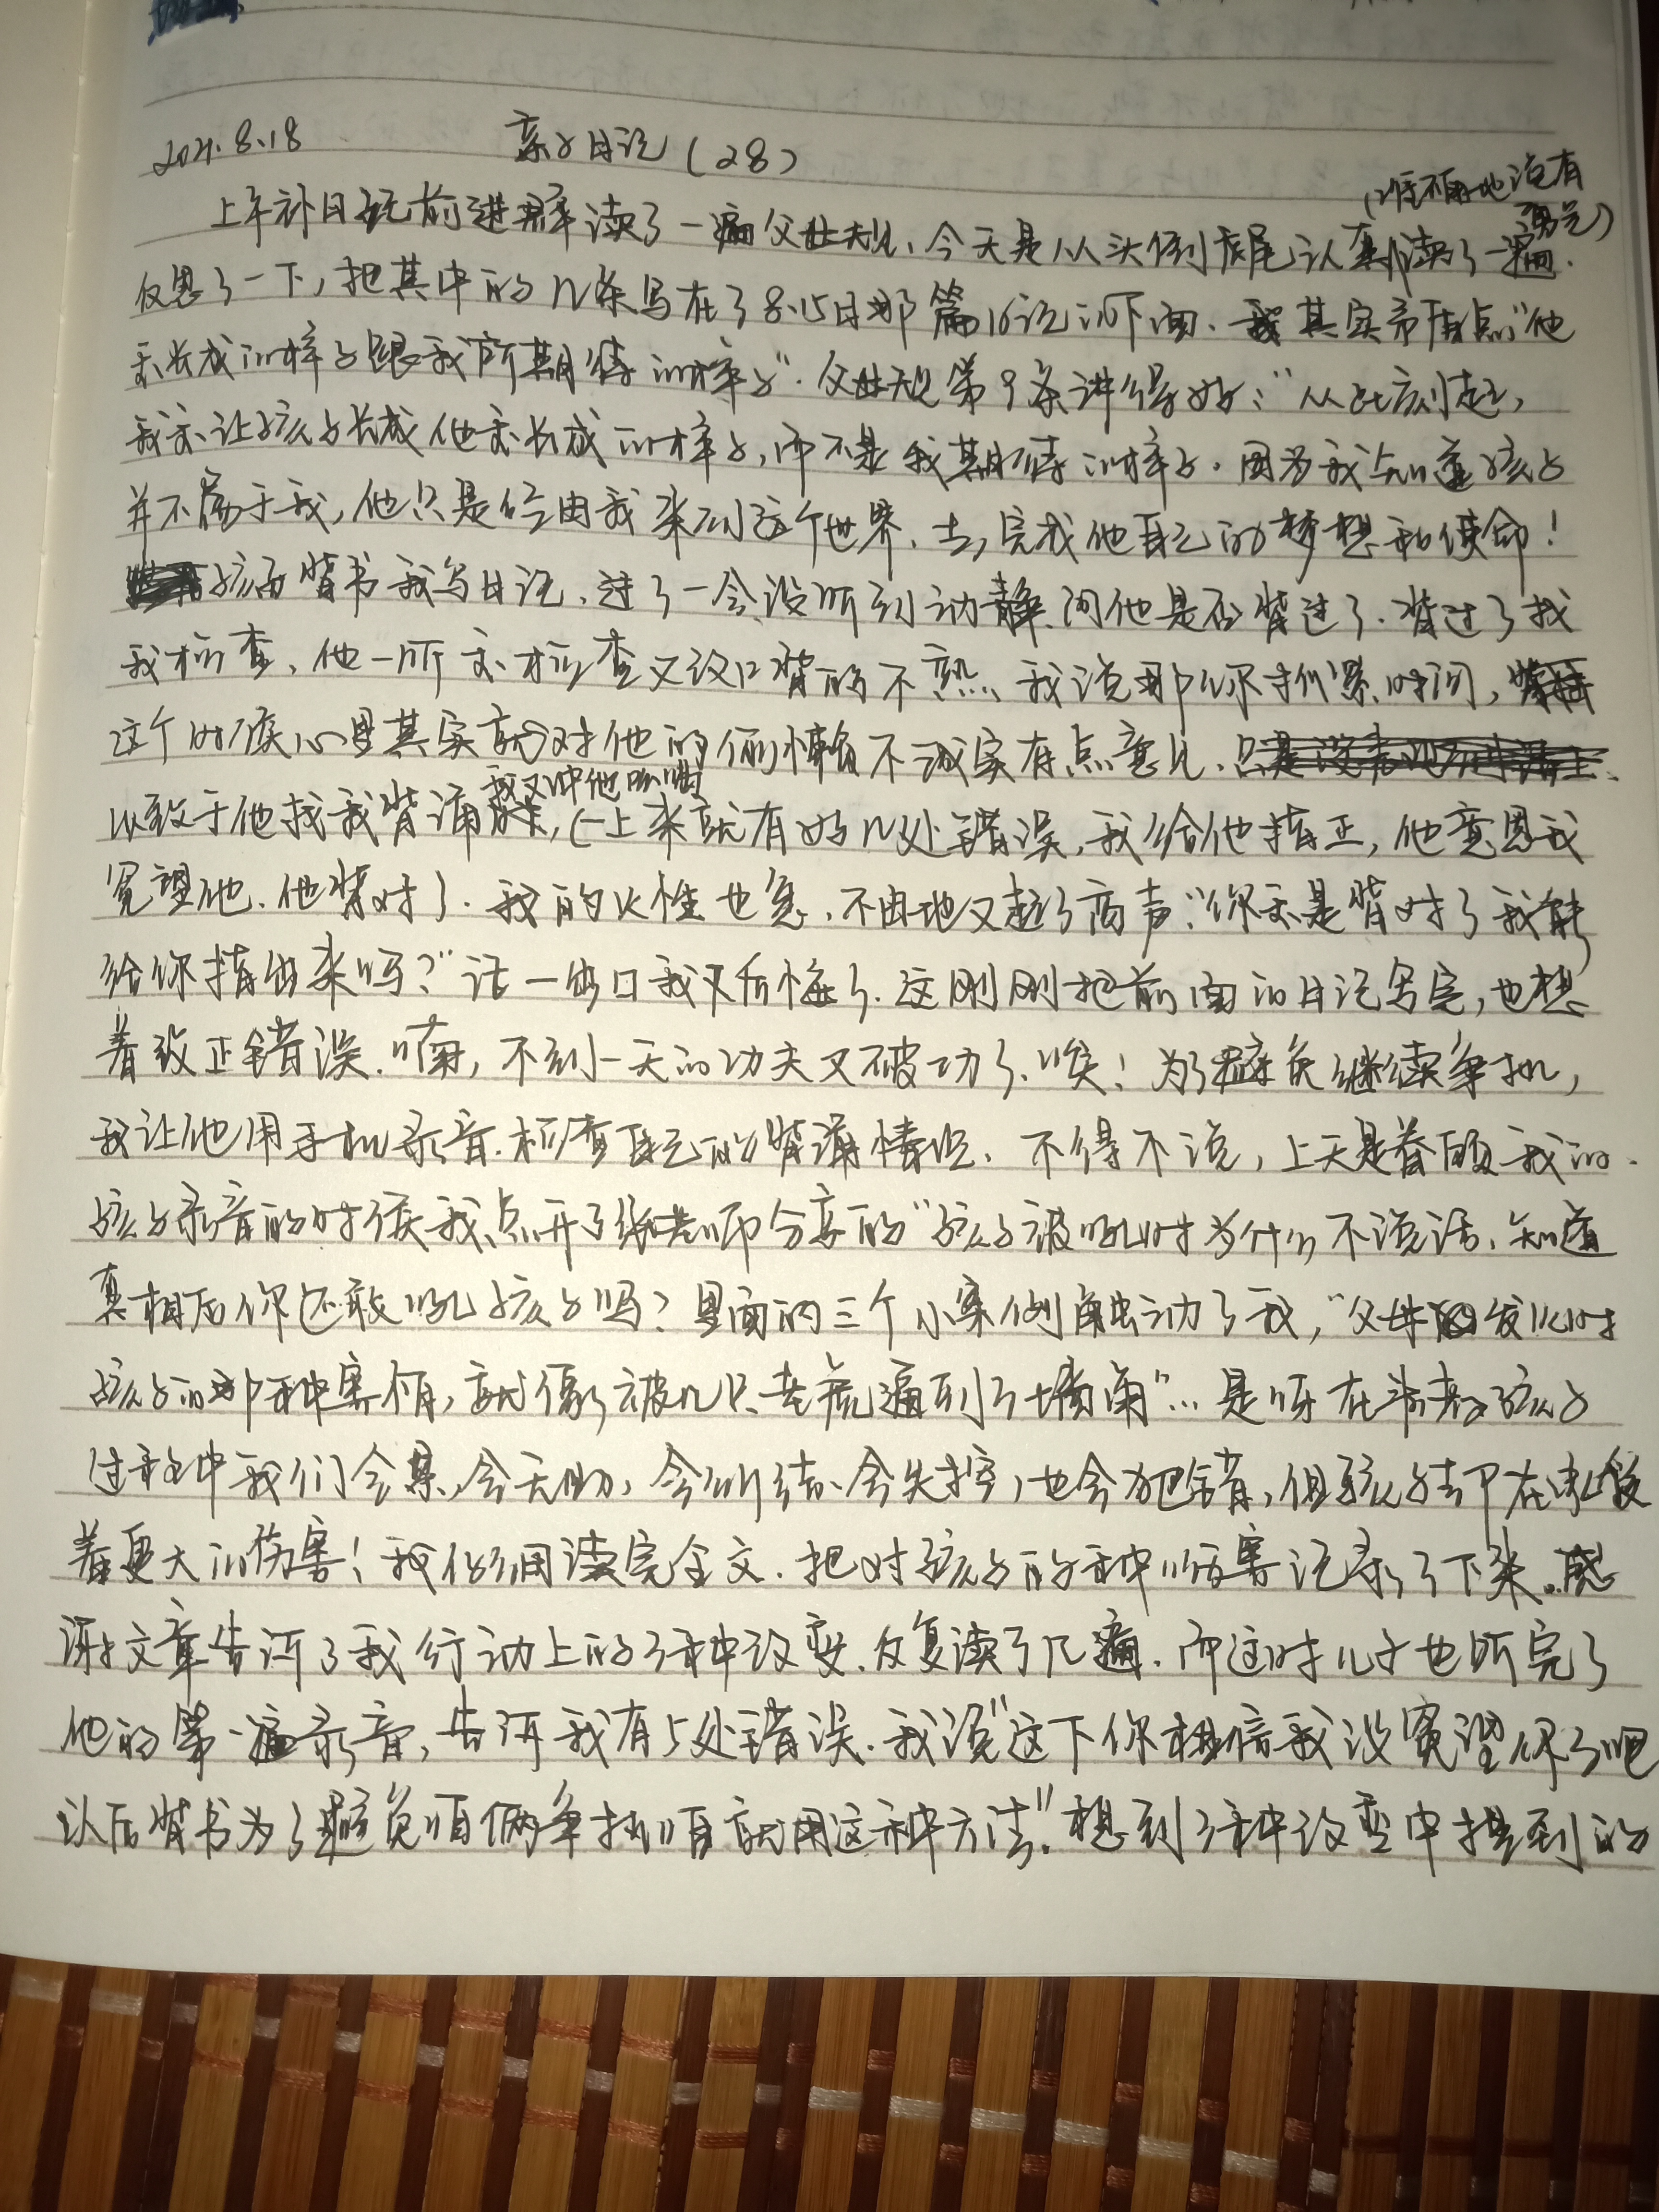 2021.8.18 亲子日记（28）
上午补日记前进群读了一遍父母规、今天是从头到尾认真读了一遍.
反思了一下，把其中的几条写在了8.15日那篇日记的下面、我其实有点"他
要长成的样子跟我所期待的样子".父母规第9条讲得好："从此刻起，
我要让孩子长成他要长成的样子，而不是我期待的样子.因为我知道孩子
并不属于我，他只是经由我来到这个世界、去完成他自己的梦想和使命！
孩子背书我写日记、过了一会没听到动静、问他是否背过了.背过了找
我检查、他一听要检查又改口背的不熟、我说那你抓紧时间，
这个时候心里其实就对他的偷懒不诚实有点意见.
我又冲他
以致于他找我背诵时，一上来就有好几处错误，我给他指正，他意思我
冤望他、他背对了.我的火性也急、不由地又起了高声："你要是背对了我能
给你指出来吗？"话一出口我又后悔了.这刚刚把前面的日记写完，也想
着改正错误.嘀，不到一天的功夫又破功了、唉！为了避免继续争执，
我让他用手机录音.检查自己的背诵情况、不得不说，上天是眷顾我的.
孩子录音的时候我点开了张老师分享的"孩子被吼时为什么不说话、知道
真相后你还敢吼孩子吗？里面的三个小案例触动了我，"父母发火时
孩子的那种害怕，就像被几只老虎逼到了墙角"…是呀在养育孩子
过程中我们会累，会无助，会纠结、会失控，也会犯错，但孩子却在承受
着更大的伤害！我仔细读完全文.把对孩子的种种伤害记录了下来.感
谢文章告诉了我行动上的3种改变.反复读了几遍.而这时儿子也听完了
他的第一遍录音，告诉我有5处错误.我说"这下你相信我没冤望你了吧
以后背书为了避免咱俩争执咱就用这种方法".想到3种改变中提到的